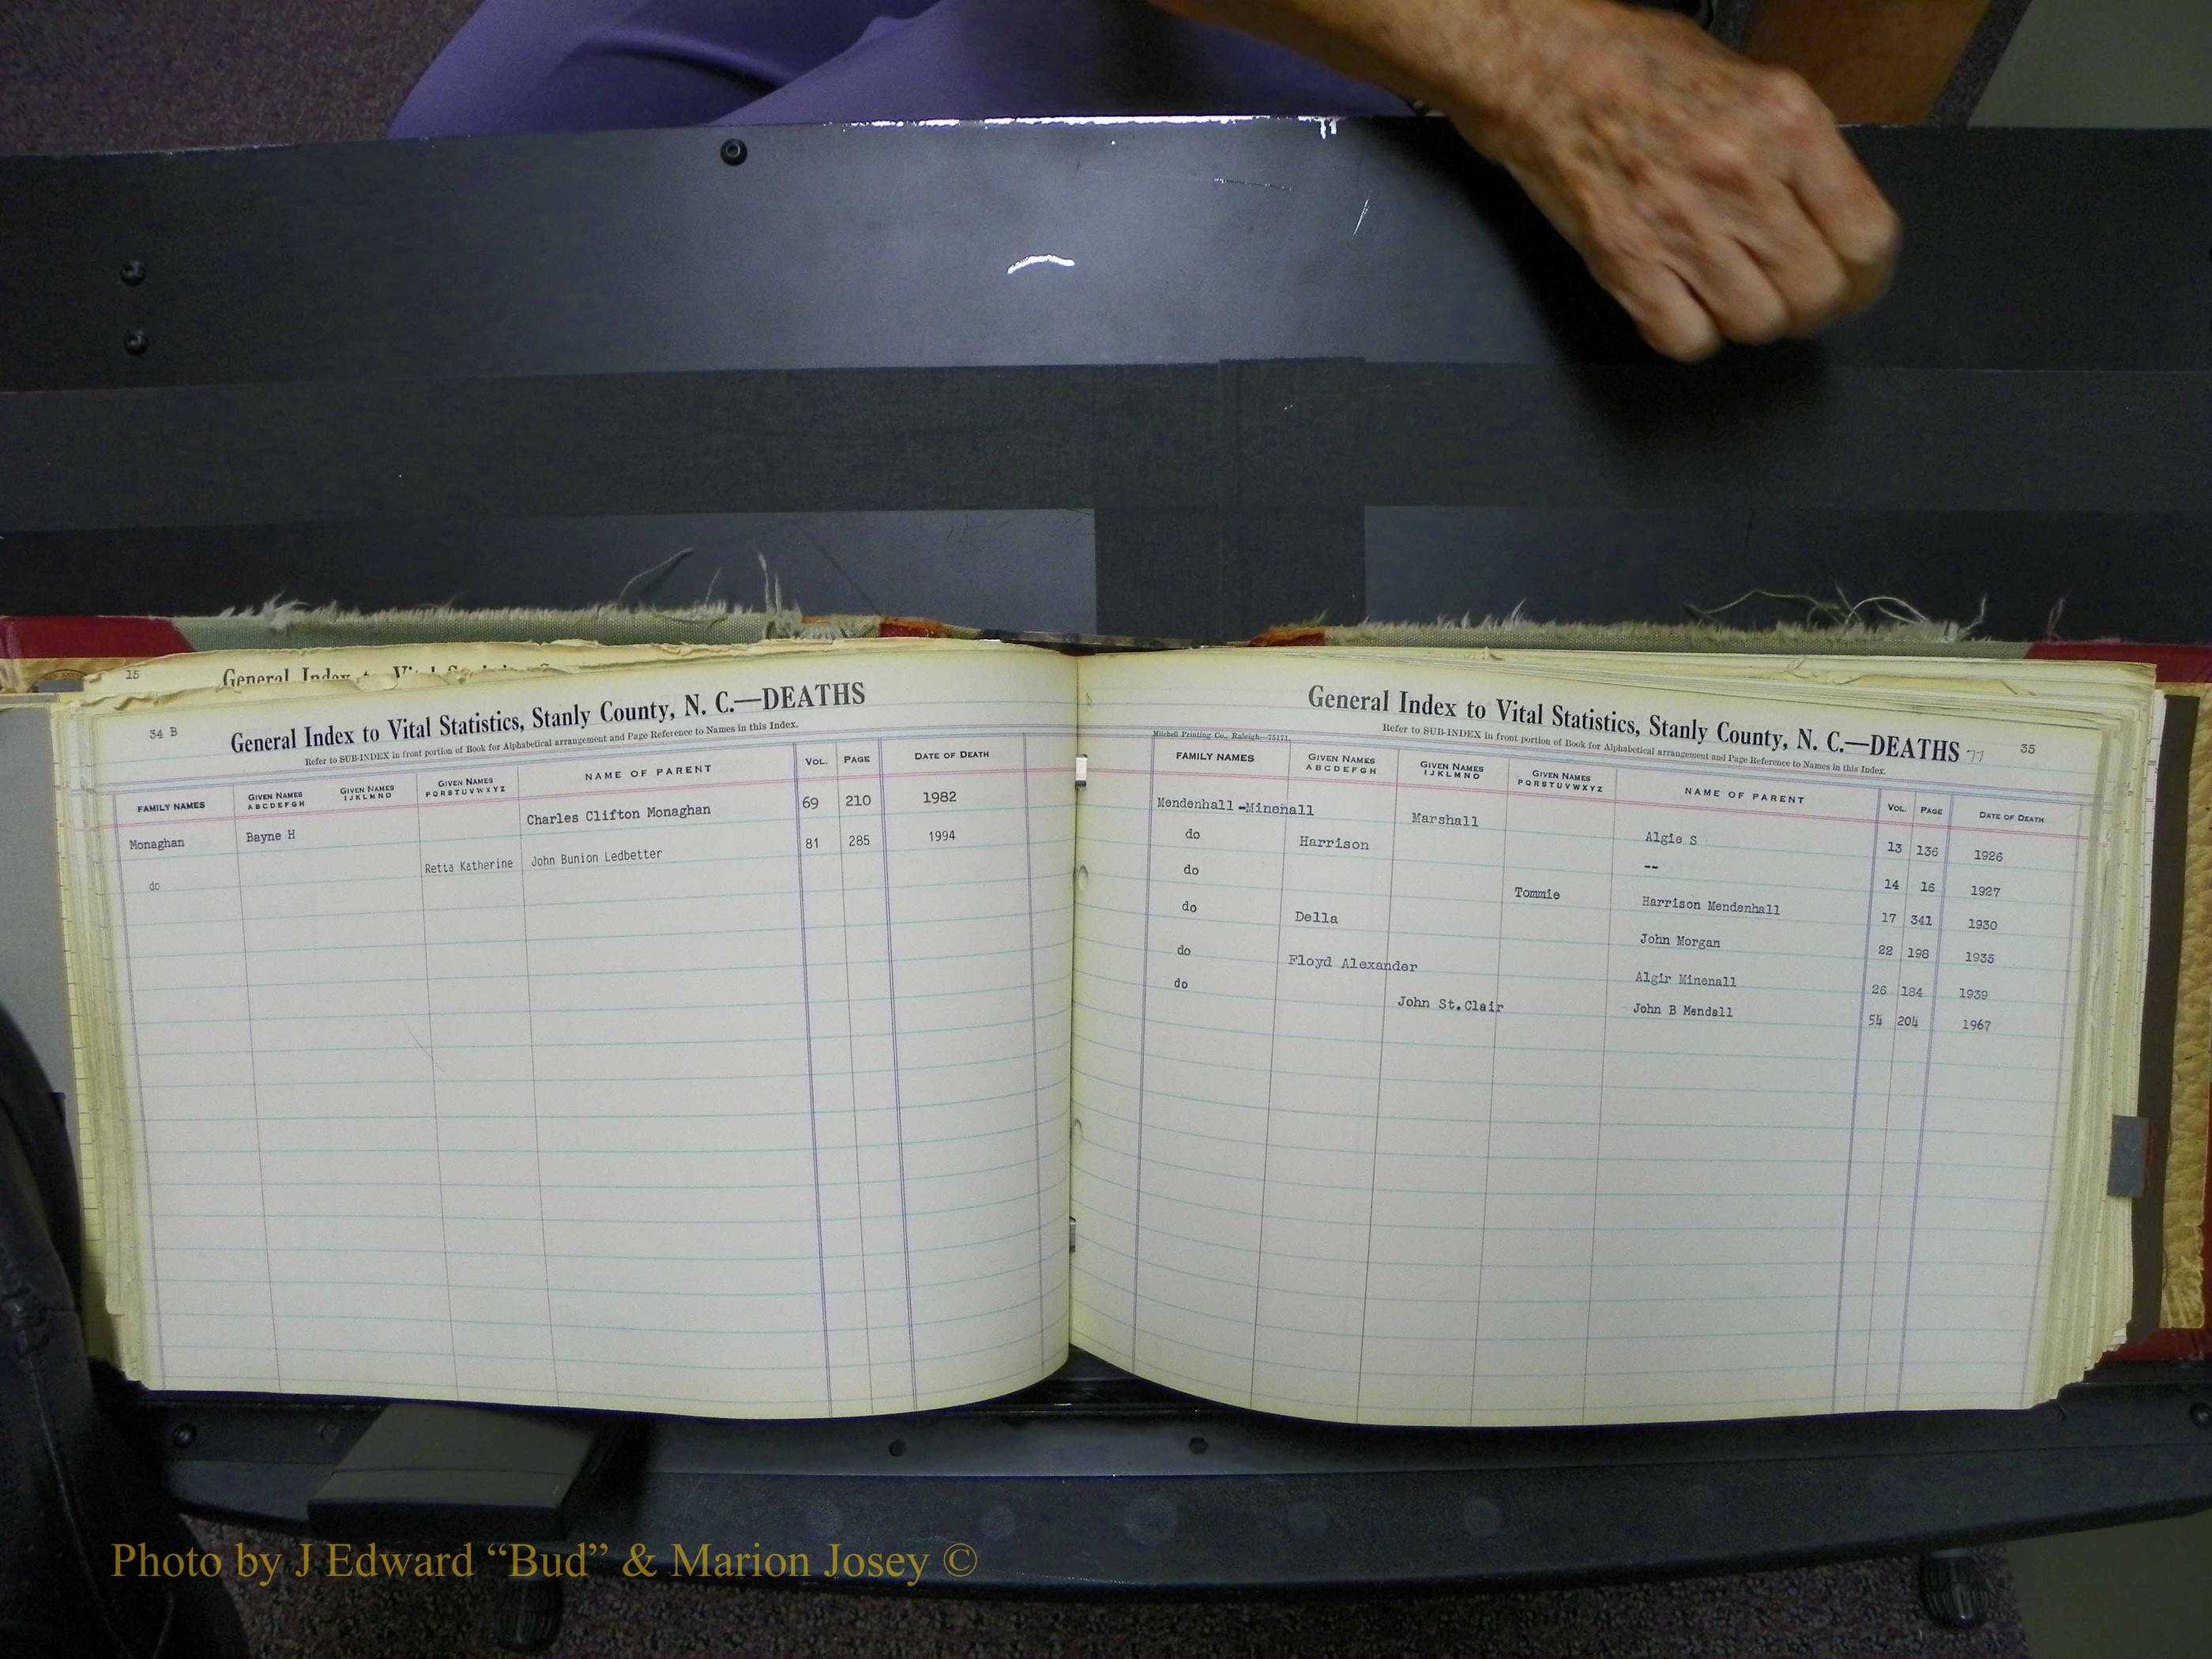 15
34 B
General Index to Vital Statistics, Stanly County, N. C.—DEATHS
Refer to SUB-INDEX in front portion of Book for Alphabetical arrangement and Page Reference to Names in this Index.
FAMILY NAMES GIVEN NAMES ABCDEFGH GIVEN NAMES IJKLMNO GIVEN NAMES PQRSTUVWXYZ NAME OF PARENT VOL. PAGE DATE OF DEATH
Monaghan Bayne H Charles Clifton Monaghan 69 210 1982
do Retta Katherine John Bunion Ledbetter 81 285 1994
General Index to Vital Statistics, Stanly County, N. C.—DEATHS 77 35
Mitchell Printing Co., Raleigh—75171.
Refer to SUB-INDEX in front portion of Book for Alphabetical arrangement and Page Reference to Names in this Index.
FAMILY NAMES GIVEN NAMES ABCDEFGH GIVEN NAMES IJKLMNO GIVEN NAMES PQRSTUVWXYZ NAME OF PARENT VOL. PAGE DATE OF DEATH
Mendenhall-Minenall Marshall Algie S 13 136 1926
do Harrison -- 14 16 1927
do Tommie Harrison Mendenhall 17 341 1930
do Della John Morgan 22 198 1935
do Floyd Alexander Algir Minenall 26 184 1939
do John St.Clair John B Mendall 54 204 1967
Photo by J Edward “Bud” & Marion Josey ©